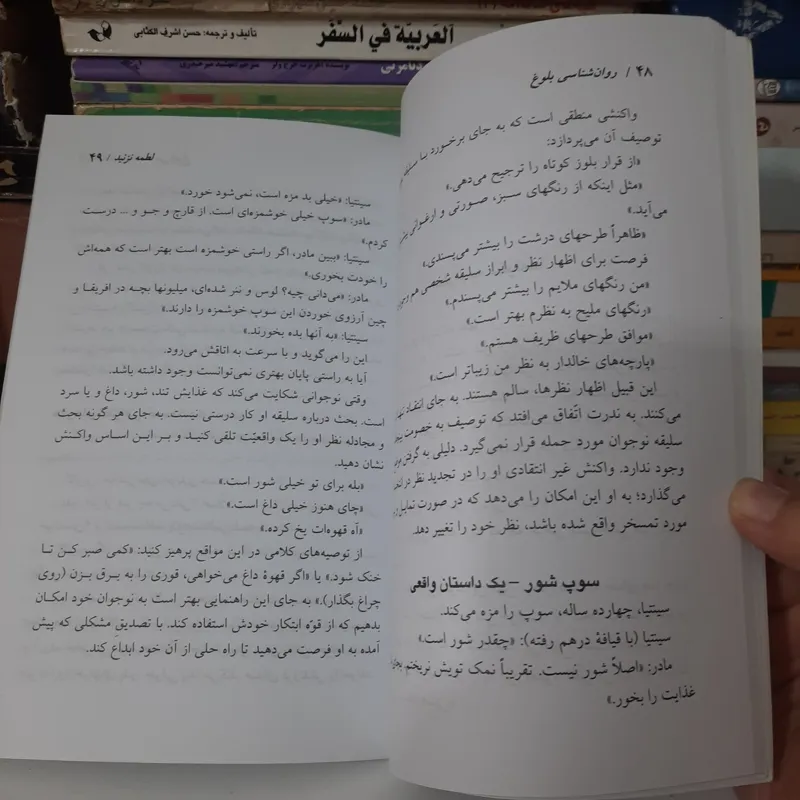 العَربيّة في السَّفَر
تألیف و ترجمه: حسن اشرف الکتّابی
۴۸ / روان‌شناسی بلوغ
واکنشی منطقی است که به جای برخورد با
توصیف آن می‌پردازد:
«از قرار بلوز کوتاه را ترجیح می‌دهی.»
«مثل اینکه از رنگهای سبز، صورتی و ارغوانی
می‌آید.»
«ظاهراً طرحهای درشت را بیشتر می‌پسندی.»
فرصت برای اظهار نظر و ابراز سلیقه شخصی هم
«من رنگهای ملایم را بیشتر می‌پسندم.»
«رنگهای ملیح به نظرم بهتر است.»
«موافق طرحهای ظریف هستم.»
«پارچه‌های خالدار به نظر من زیباتر است»
این قبیل اظهار نظرها، سالم هستند. به جای انتقاد
می‌کنند. به ندرت اتّفاق می‌افتد که توصیف به خصوصیت
سلیقه نوجوان مورد حمله قرار نمی‌گیرد. دلیلی به گرفتن
وجود ندارد. واکنش غیر انتقادی او را در تجدید نظر در
می‌گذارد؛ به او این امکان را می‌دهد که در صورت تمایل
مورد تمسخر واقع شده باشد، نظر خود را تغییر دهد.
سوپ شور – یک داستان واقعی
سینتیا، چهارده ساله، سوپ را مزه می‌کند.
سینتیا (با قیافهٔ درهم رفته): «چقدر شور است.»
مادر: «اصلاً شور نیست. تقریباً نمک تویش نریختم.
غذایت را بخور.»
لطمه نزنید / ۴۹
سینتیا: «خیلی بد مزه است، نمی‌شود خورد.»
مادر: «سوپ خیلی خوشمزه‌ای است. از قارچ و جو و ... درست
کردم.»
سینتیا: «ببین مادر، اگر راستی خوشمزه است بهتر است که همه‌اش
را خودت بخوری.»
مادر: «می‌دانی چیه؟ لوس و ننر شده‌ای، میلیونها بچه در افریقا و
چین آرزوی خوردن این سوپ خوشمزه را دارند.»
سینتیا: «به آنها بده بخورند.»
این را می‌گوید و با سرعت به اتاقش می‌رود.
آیا به راستی پایان بهتری نمی‌توانست وجود داشته باشد.
وقتی نوجوانی شکایت می‌کند که غذایش تند، شور، داغ و یا سرد
است. بحث درباره سلیقه او کار درستی نیست. به جای هر گونه بحث
و مجادله نظر او را یک واقعیّت تلقی کنید و بر این اساس واکنش
نشان دهید.
«بله برای تو خیلی شور است.»
«چای هنوز خیلی داغ است.»
«آه قهوه‌ات یخ کرده.»
از توصیه‌های کلامی در این مواقع پرهیز کنید: «کمی صبر کن تا
خنک شود.» یا «اگر قهوهٔ داغ می‌خواهی، قوری را به برق بزن (روی
چراغ بگذار).» به جای این راهنمایی بهتر است به نوجوان خود امکان
بدهیم که از قوّه ابتکار خودش استفاده کند. با تصدیقِ مشکلی که پیش
آمده به او فرصت می‌دهید تا راه حلی از آن خود ابداع کند.